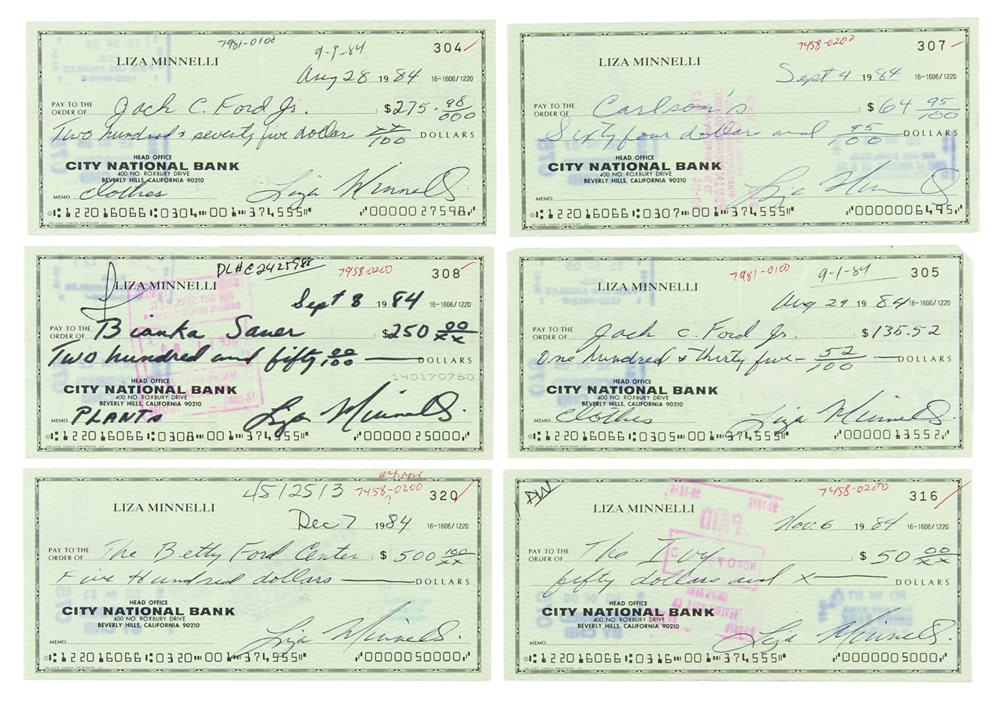 7981-0100
304
LIZA MINNELLI
9-9-84
Aug 28 19 84 16-1606/1220
PAY TO THE ORDER OF Jack C. Ford Jr. $275.98/000
Two hundred + seventy five dollar xx/100 DOLLARS
HEAD OFFICE
CITY NATIONAL BANK
400 NO. ROXBURY DRIVE
BEVERLY HILLS, CALIFORNIA 90210
MEMO clothes Liza Minnelli
122016066 0304 001 374555 0000027598
7458-0202
307
LIZA MINNELLI
Sept 4 19 84 16-1606/1220
PAY TO THE ORDER OF Carlson's $64 95/100
Sixty four dollar and 95/100 DOLLARS
HEAD OFFICE
CITY NATIONAL BANK
400 NO. ROXBURY DRIVE
BEVERLY HILLS, CALIFORNIA 90210
MEMO Liza Minnelli
122016066 0307 001 374555 0000006495
DL#C2425988
7958-0200
308
LIZA MINNELLI
Sept 8 19 84 16-1606/1220
PAY TO THE ORDER OF Bianka Sauer $250 00/xx
Two hundred and fifty 00/100 DOLLARS
140170750
HEAD OFFICE
CITY NATIONAL BANK
400 NO. ROXBURY DRIVE
BEVERLY HILLS, CALIFORNIA 90210
MEMO PLANTS Liza Minnelli
122016066 0308 001 374555 0000025000
7981-0100
305
LIZA MINNELLI
9-1-84
Aug 29 19 84 16-1606/1220
PAY TO THE ORDER OF Jack C. Ford Jr. $135.52
One hundred + thirty five 52/100 DOLLARS
HEAD OFFICE
CITY NATIONAL BANK
400 NO. ROXBURY DRIVE
BEVERLY HILLS, CALIFORNIA 90210
MEMO Clothes Liza Minnelli
122016066 0305 001 374555 0000013552
4512513
7458-0200
320
LIZA MINNELLI
Dec 7 1984 16-1606/1220
PAY TO THE ORDER OF The Betty Ford Center $500 100/xx
Five Hundred dollars DOLLARS
HEAD OFFICE
CITY NATIONAL BANK
400 NO. ROXBURY DRIVE
BEVERLY HILLS, CALIFORNIA 90210
MEMO Liza Minnelli
122016066 0320 001 374555 0000050000
PW
7458-0200
316
LIZA MINNELLI
Nov. 6 19 84 16-1606/1220
PAY TO THE ORDER OF The Ivy $50 00/xx
fifty dollars and x DOLLARS
HEAD OFFICE
CITY NATIONAL BANK
400 NO. ROXBURY DRIVE
BEVERLY HILLS, CALIFORNIA 90210
MEMO Liza Minnelli
122016066 0316 001 374555 0000005000
PAID